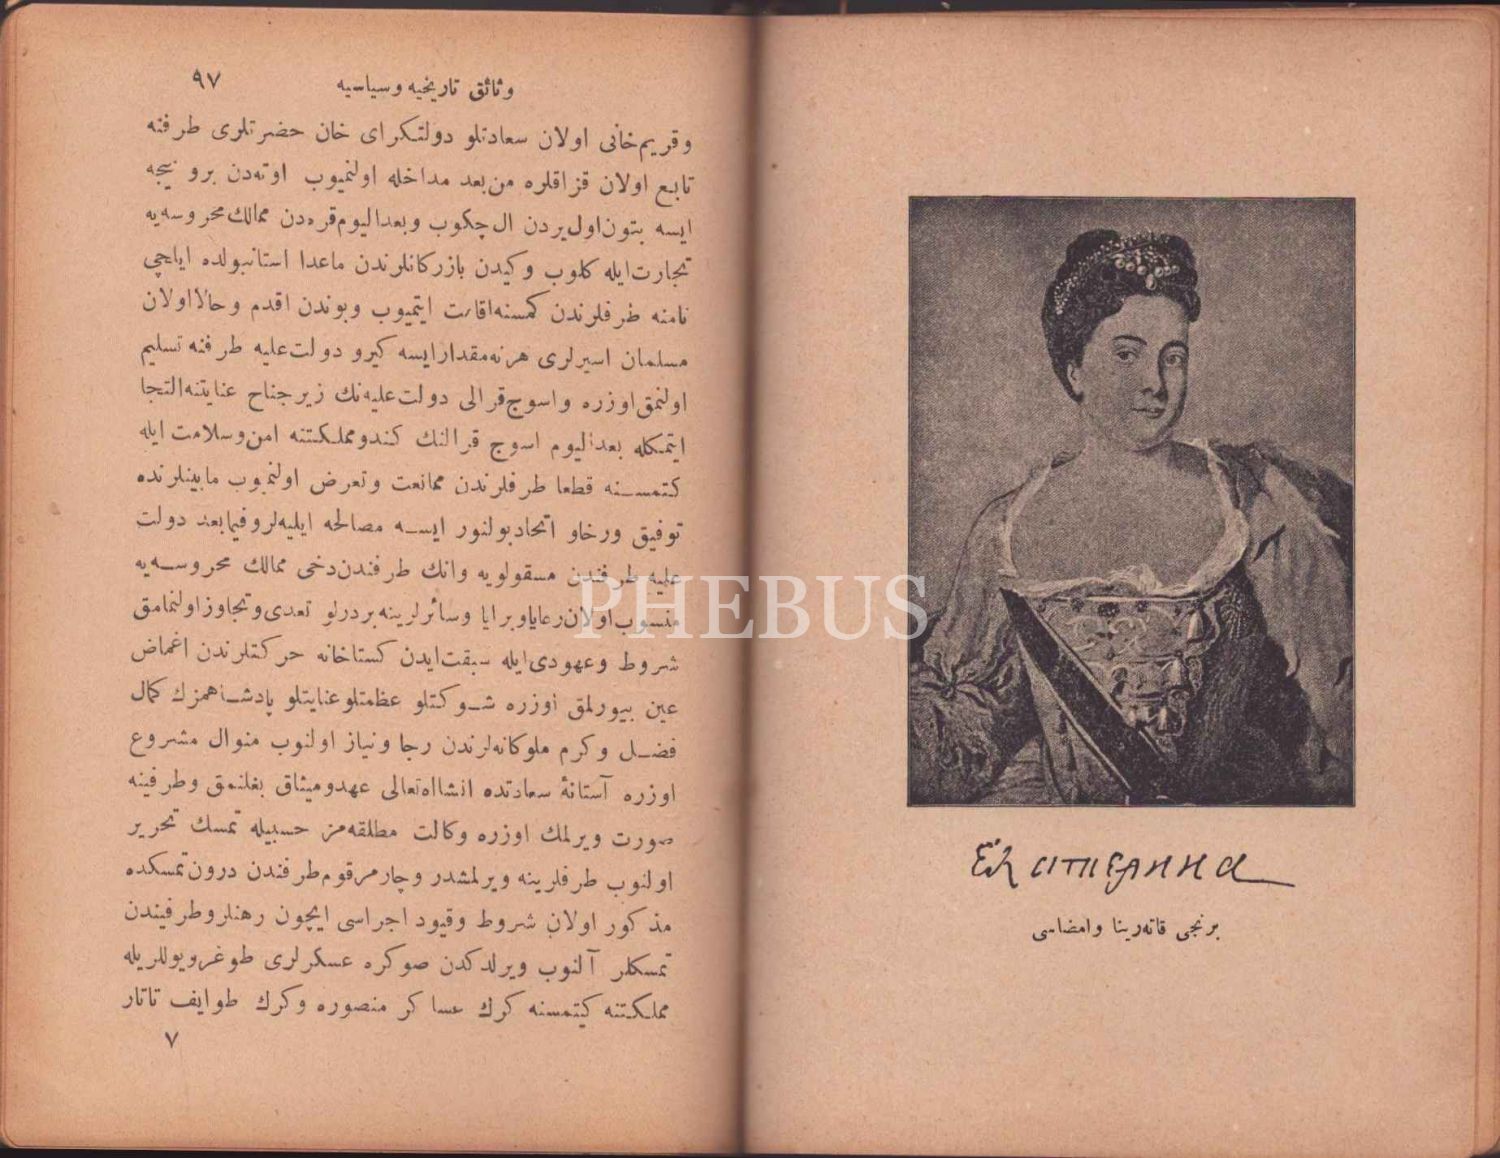 برنجی قاته‌رینا وامضاسی
Екатерина
وثائق تاریخیه وسیاسیه
٩٧
وقریم‌خانی اولان سعادتلو دولتکرای خان حضرتلری طرفنه
تابع اولان قزاقلره من‌بعد مداخله اولنمیوب اوته‌دن برو نیجه
ایسه بتون‌اول‌یردن ال‌چکوب وبعدالیوم‌قره‌دن ممالك‌محروسه‌یه
تجارت‌ایله کلوب وکیدن بازرکانلرندن ماعدا استانبولده ایلچی
نامنه طرفلرندن کمسنه‌اقامت ایتمیوب وبوندن اقدم وحالااولان
مسلمان اسیرلری هرنه‌مقدارایسه کیرو دولت‌علیه طرفنه تسلیم
اولنمق‌اوزره واسوج‌قرالی دولت‌علیه‌نك زیرجناح عنایتنه‌التجا
ایتمکله بعدالیوم اسوج قرالنك کندومملکتنه امن‌وسلامت ایله
کتمسنه قطعا طرفلرندن ممانعت وتعرض اولنمیوب مابینلرنده
توفیق ورخاو اتحادبولنور ایسه مصالحه ایلیه‌لروفیمابعد دولت
علیه طرفندن مسقولویه وانك طرفندن‌دخی ممالك محروسه‌یه
منسوب‌اولان‌رعایاوبرایا وسائرلرینه‌بردرلو تعدی‌وتجاوزاولنمامق
شروط وعهودی‌ایله سبقت‌ایدن کستاخانه حرکتلرندن اغماض
عین بیورلمق اوزره شوکتلو عظمتلوعنایتلو پادشاهمزك کمال
فضل وکرم ملوکانه‌لرندن رجا ونیاز اولنوب منوال مشروع
اوزره آستانهٔ سعادتده انشاالله‌تعالی عهدومیثاق بغلنمق وطرفینه
صورت ویرلمك اوزره وکالت مطلقه‌مز حسبیله تمسك تحریر
اولنوب طرفلرینه ویرلمشدر وچارمرقوم‌طرفندن درون‌تمسکده
مذکور اولان شروط وقیود اجراسی ایچون رهنلروطرفیندن
تمسکلر آلنوب ویرلدکدن صوکره عسکرلری طوغرویوللریله
مملکتنه کیتمسنه کرك عساکر منصوره وکرك طوایف تاتار
٧
PHEBUS